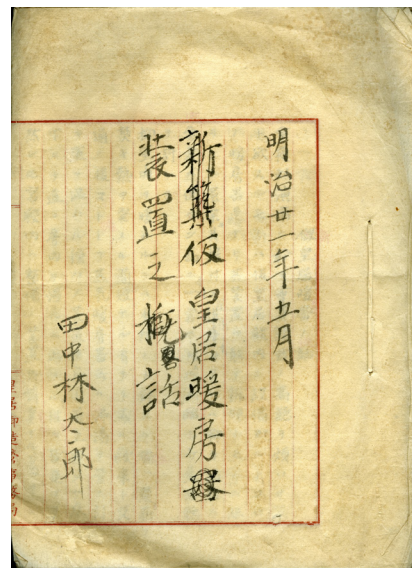 明治廿一年五月
新築仮皇居暖房
装置之概畧話
田中林太郎